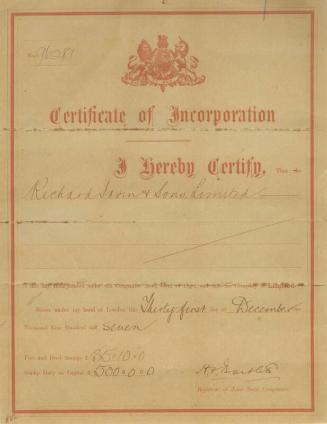 No. 96081
Certificate of Incorporation
I Hereby Certify, That
Richard & Sons, Limited
is this day Incorporated under the Companies' Acts, and that the Company is Limited.
Given under my hand at London this Thirty first day of December
Thousand Nine Hundred and Seven
Fees and Deed Stamps £ 35.10.0
Stamp Duty on Capital £ 500.0.0
Registrar of Joint Stock Companies.